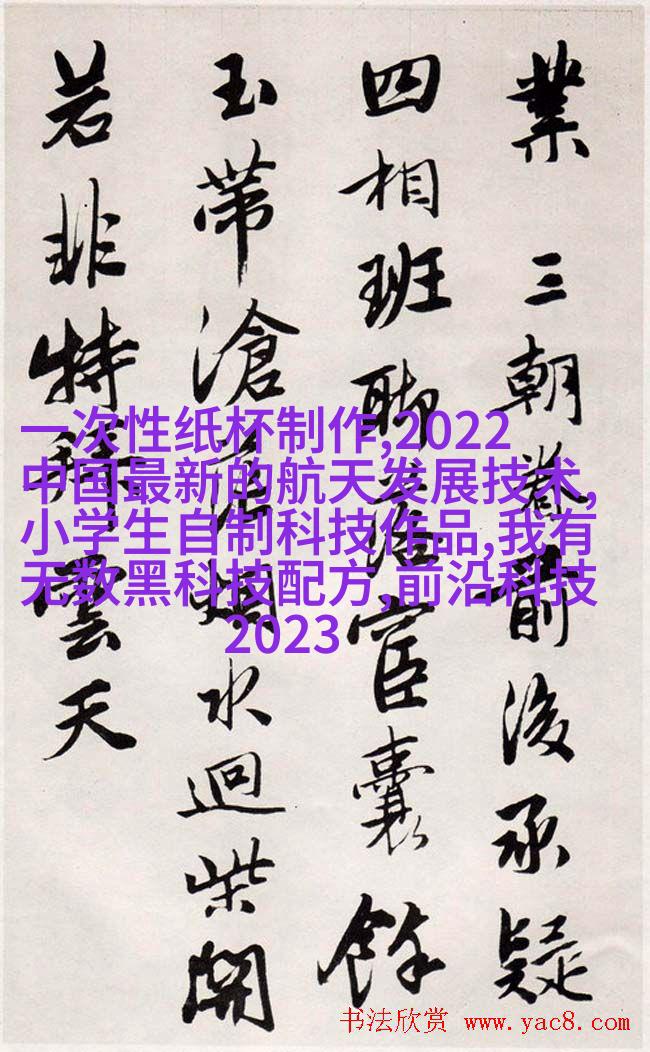 業 三朝眷前後承疑
四相班聯宦囊餘
玉帶滄茫烟水迴柴開
若非特拜雲天
一次性纸杯制作,2022
中国最新的航天发展技术,
小学生自制科技作品,我有
无数黑科技配方,前沿科技
2023
书法欣赏 www.yac8.com